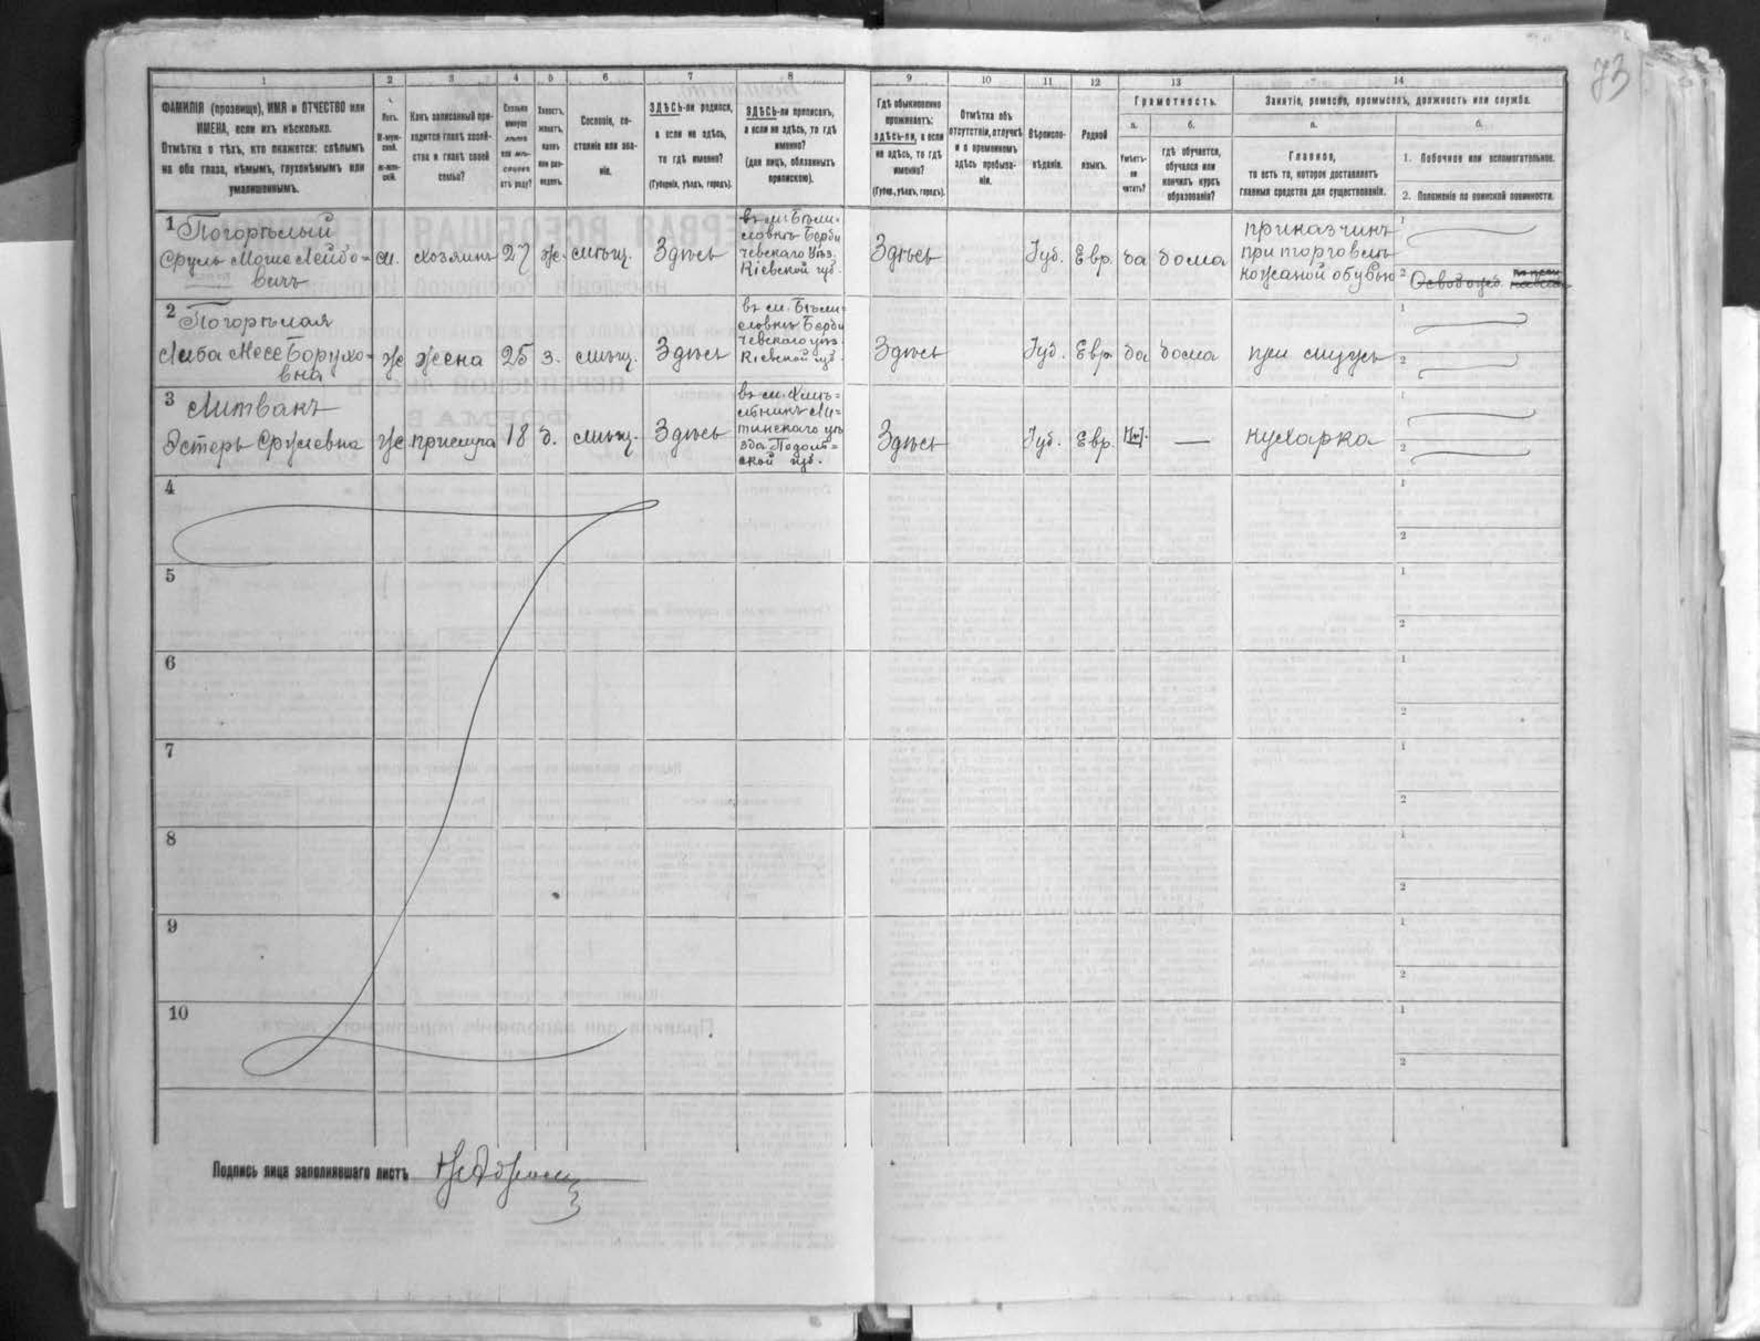 73
1 2 3 4 5 6 7 8 9 10 11 12 13 14
ФАМИЛІЯ (прозвище), ИМЯ и ОТЧЕСТВО или
ИМЕНА, если ихъ нѣсколько.
Отмѣтка о тѣхъ, кто окажется: слѣпымъ
на оба глаза, нѣмымъ, глухонѣмымъ или
умалишеннымъ.
Полъ.
М-муж-
ской.
Ж-жен-
скій.
Какъ записанный при-
ходится главѣ хозяй-
ства и главѣ своей
семьи?
Сколько
минуло
лѣтъ
или мѣ-
сяцевъ
отъ роду?
Холостъ,
женатъ,
вдовъ
или раз-
веденъ.
Сословіе, со-
стояніе или зва-
ніе.
ЗДѢСЬ-ли родился,
а если не здѣсь,
то гдѣ именно?
(Губернія, уѣздъ, городъ).
ЗДѢСЬ-ли приписанъ,
а если не здѣсь, то гдѣ
именно?
(для лицъ, обязанныхъ
припискою).
Гдѣ обыкновенно
проживаетъ:
здѣсь-ли, а если
не здѣсь, то гдѣ
именно?
(Губер., уѣздъ, городъ).
Отмѣтка объ
отсутствіи, отлучкѣ
и о временномъ
здѣсь пребыва-
ніи.
Вѣроиспо-
вѣданіе.
Родной
языкъ.
Грамотность.
а.
Умѣетъ-
ли
читать?
б.
гдѣ обучается,
обучался или
кончилъ курсъ
образованія?
Занятіе, ремесло, промыселъ, должность или служба.
а.
Главное,
то есть то, которое доставляетъ
главныя средства для существованія.
б.
1. Побочное или вспомогательное.
2. Положеніе по воинской повинности.
1 Погорѣлый
Сруль Моше Лейбо-
вичъ
м. хозяинъ 27 ж. мѣщ. Здѣсь
въ м. Бѣли-
ловкѣ Берди
чевскаго уѣз.
Кіевской губ.
Здѣсь Іуд. Евр. да дома
приказчикъ
при торговлѣ
кожаной обувью
1
2
2 Погорѣлая
Либа Месе Борухо-
вна
ж жена 25 з. мѣщ. Здѣсь
въ м. Бѣли
ловкѣ Берди
чевскаго уѣз.
Кіевской губ.
Здѣсь Іуд. Евр. да дома при мужѣ
1
2
3 Литвакъ
Эстеръ Срулевна
ж прислуга 18 д. мѣщ. Здѣсь
въ м. Хмѣ-
льникѣ Ли-
тинскаго уѣ
зда Подоль-
ской губ.
Здѣсь Іуд. Евр. — кухарка
1
2
4 1
2
5 1
2
6 1
2
7 1
2
8 1
2
9 1
2
10 1
2
Подпись лица заполнявшаго листъ